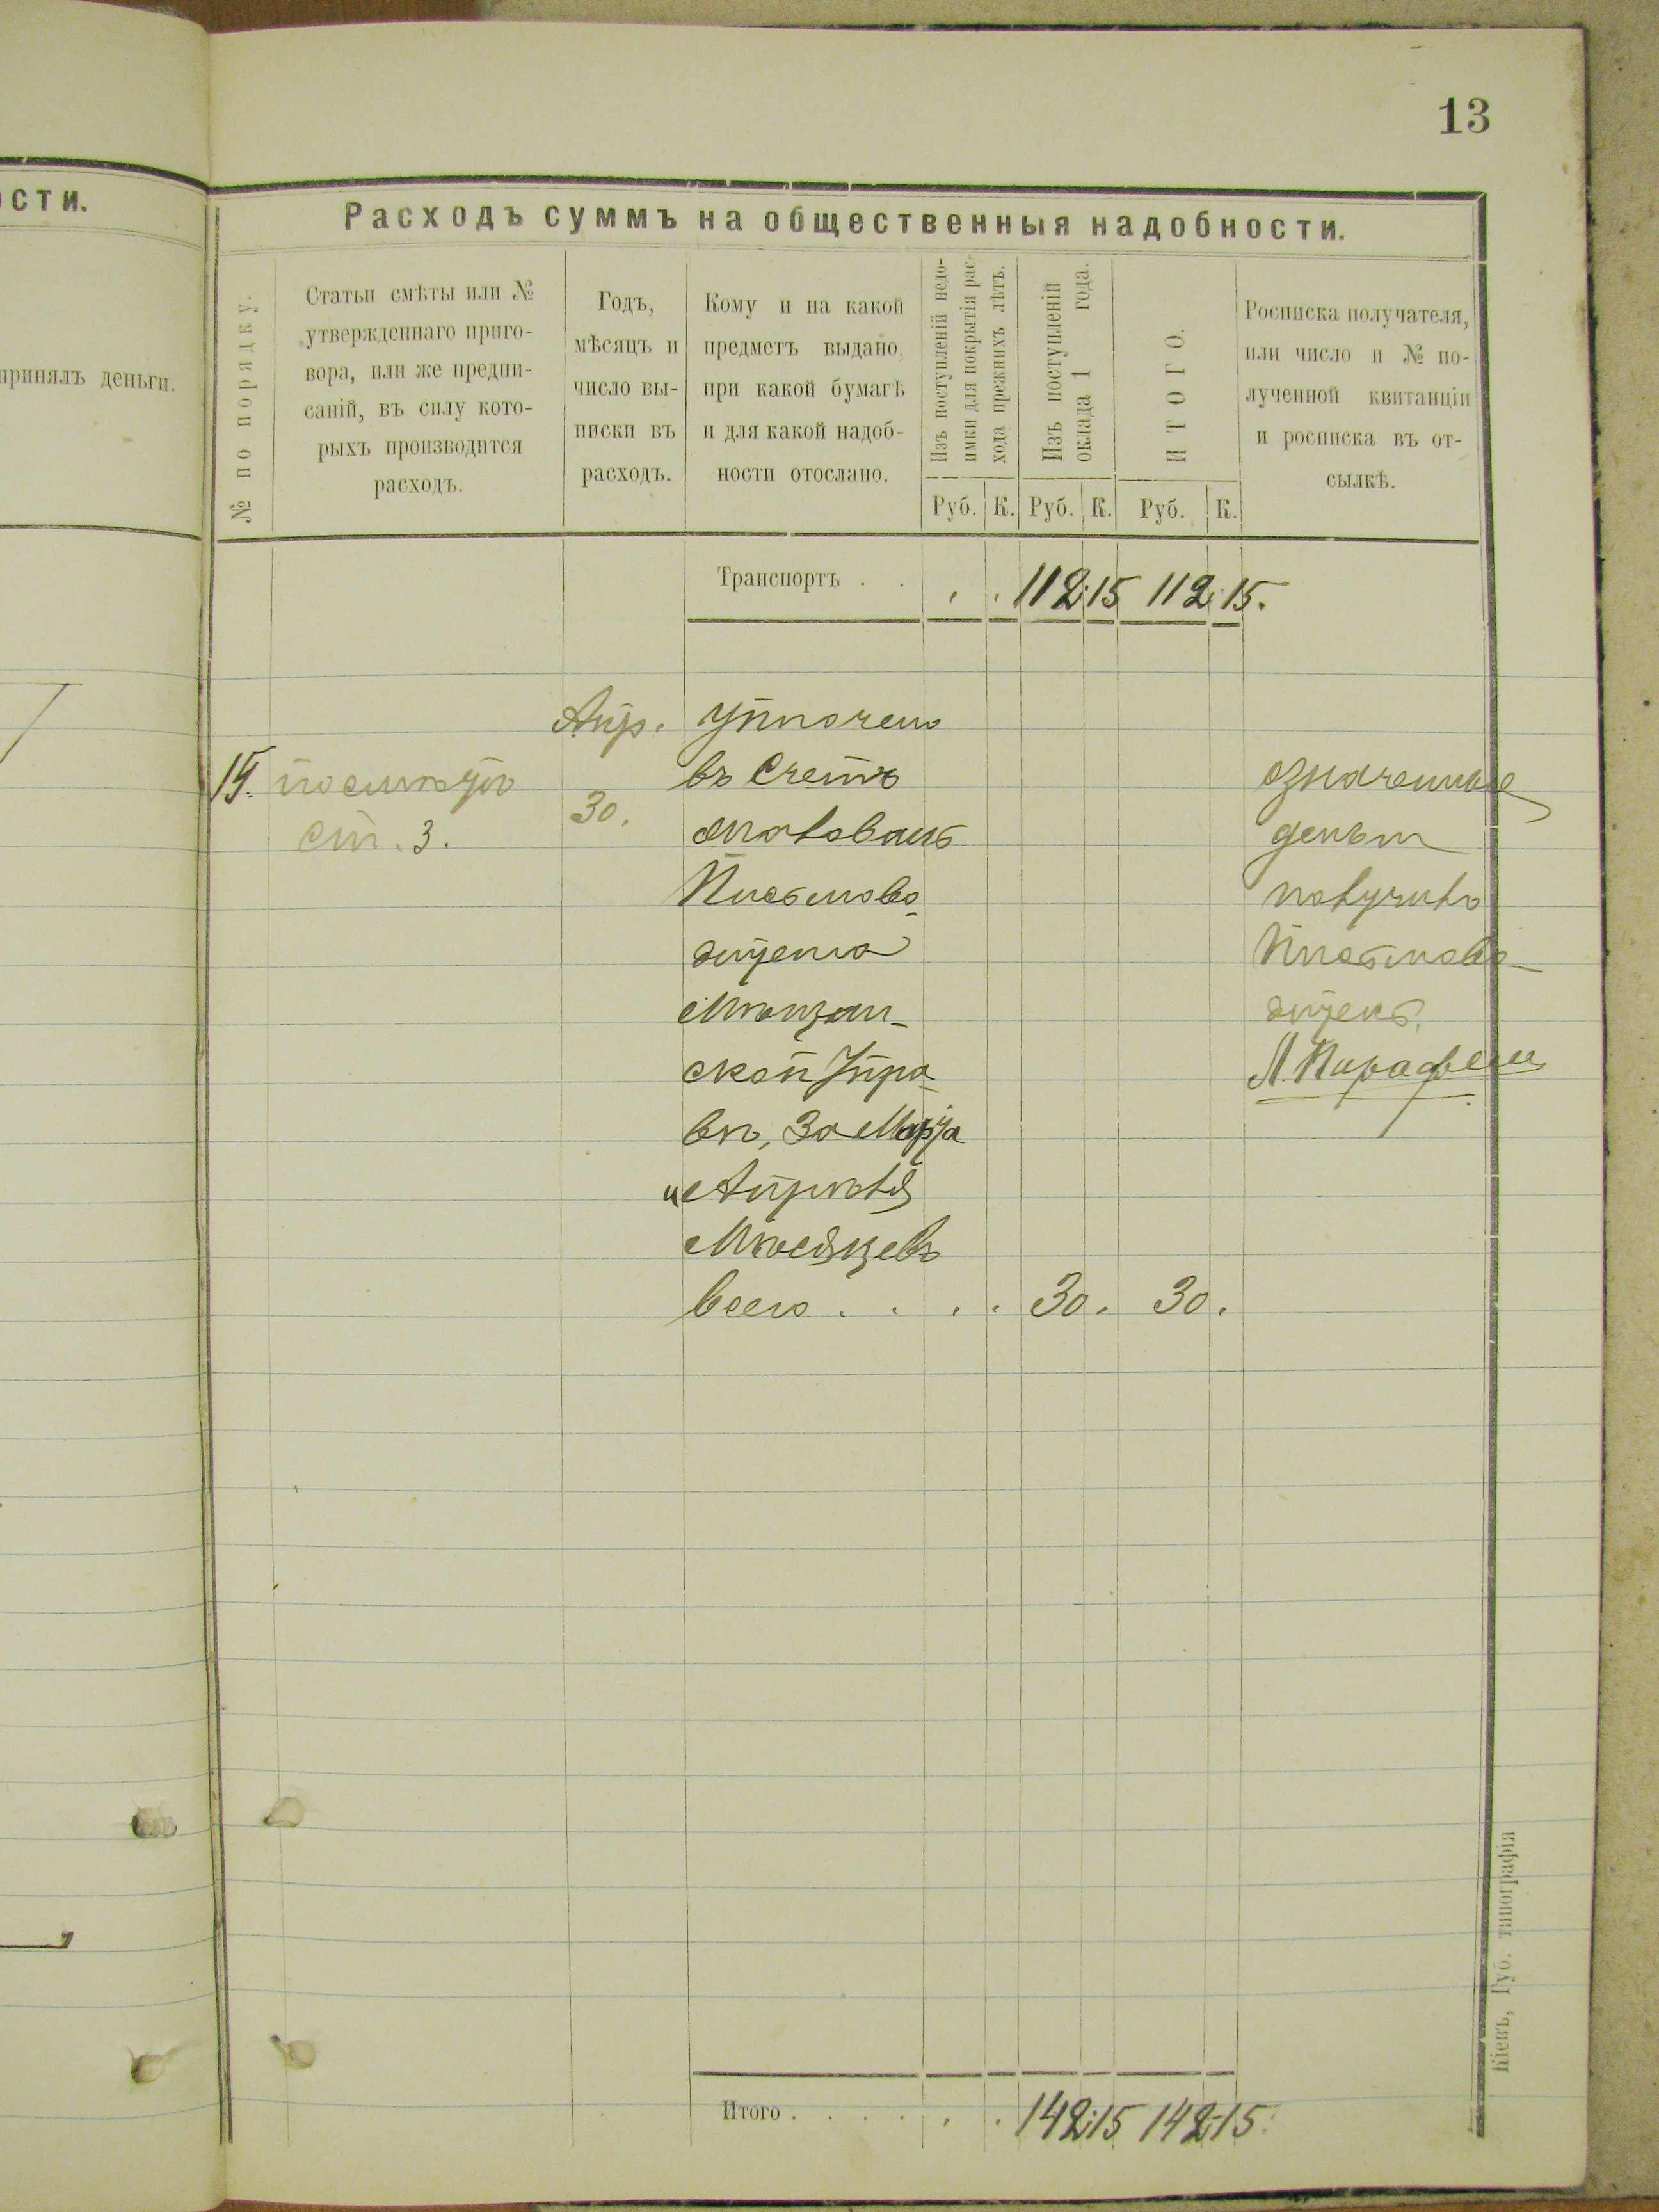 13
ости.
принялъ деньги.
Расходъ суммъ на общественныя надобности.
№ по порядку.
Статьи смѣты или №
утвержденнаго приго-
вора, или же предпи-
саній, въ силу кото-
рыхъ производится
расходъ.
Годъ,
мѣсяцъ и
число вы-
писки въ
расходъ.
Кому и на какой
предметъ выдано,
при какой бумагѣ
и для какой надоб-
ности отослано.
Изъ поступленій недо-
имки для покрытія рас-
хода прежнихъ лѣтъ.
Изъ поступленій
оклада 1 года.
ИТОГО.
Росписка получателя,
или число и № по-
лученной квитанціи
и росписка въ от-
сылкѣ.
Руб. К. Руб. К. Руб. К.
Транспортъ . . . . 112.15 112.15.
Апр.
30.
по смѣтѣ
ст. 3.
Уплочено
въ Счетъ
жалованья
Письмово-
дителю
Мѣщан-
ской Упра-
вы, за Марта
и Апрѣля
Мѣсяцевъ
всего . . . . 30. 30.
означенные
деньги
получилъ
Письмово-
дитель
Итого . . . . . . 142.15 142.15.
Кіевъ, Губ. типографія